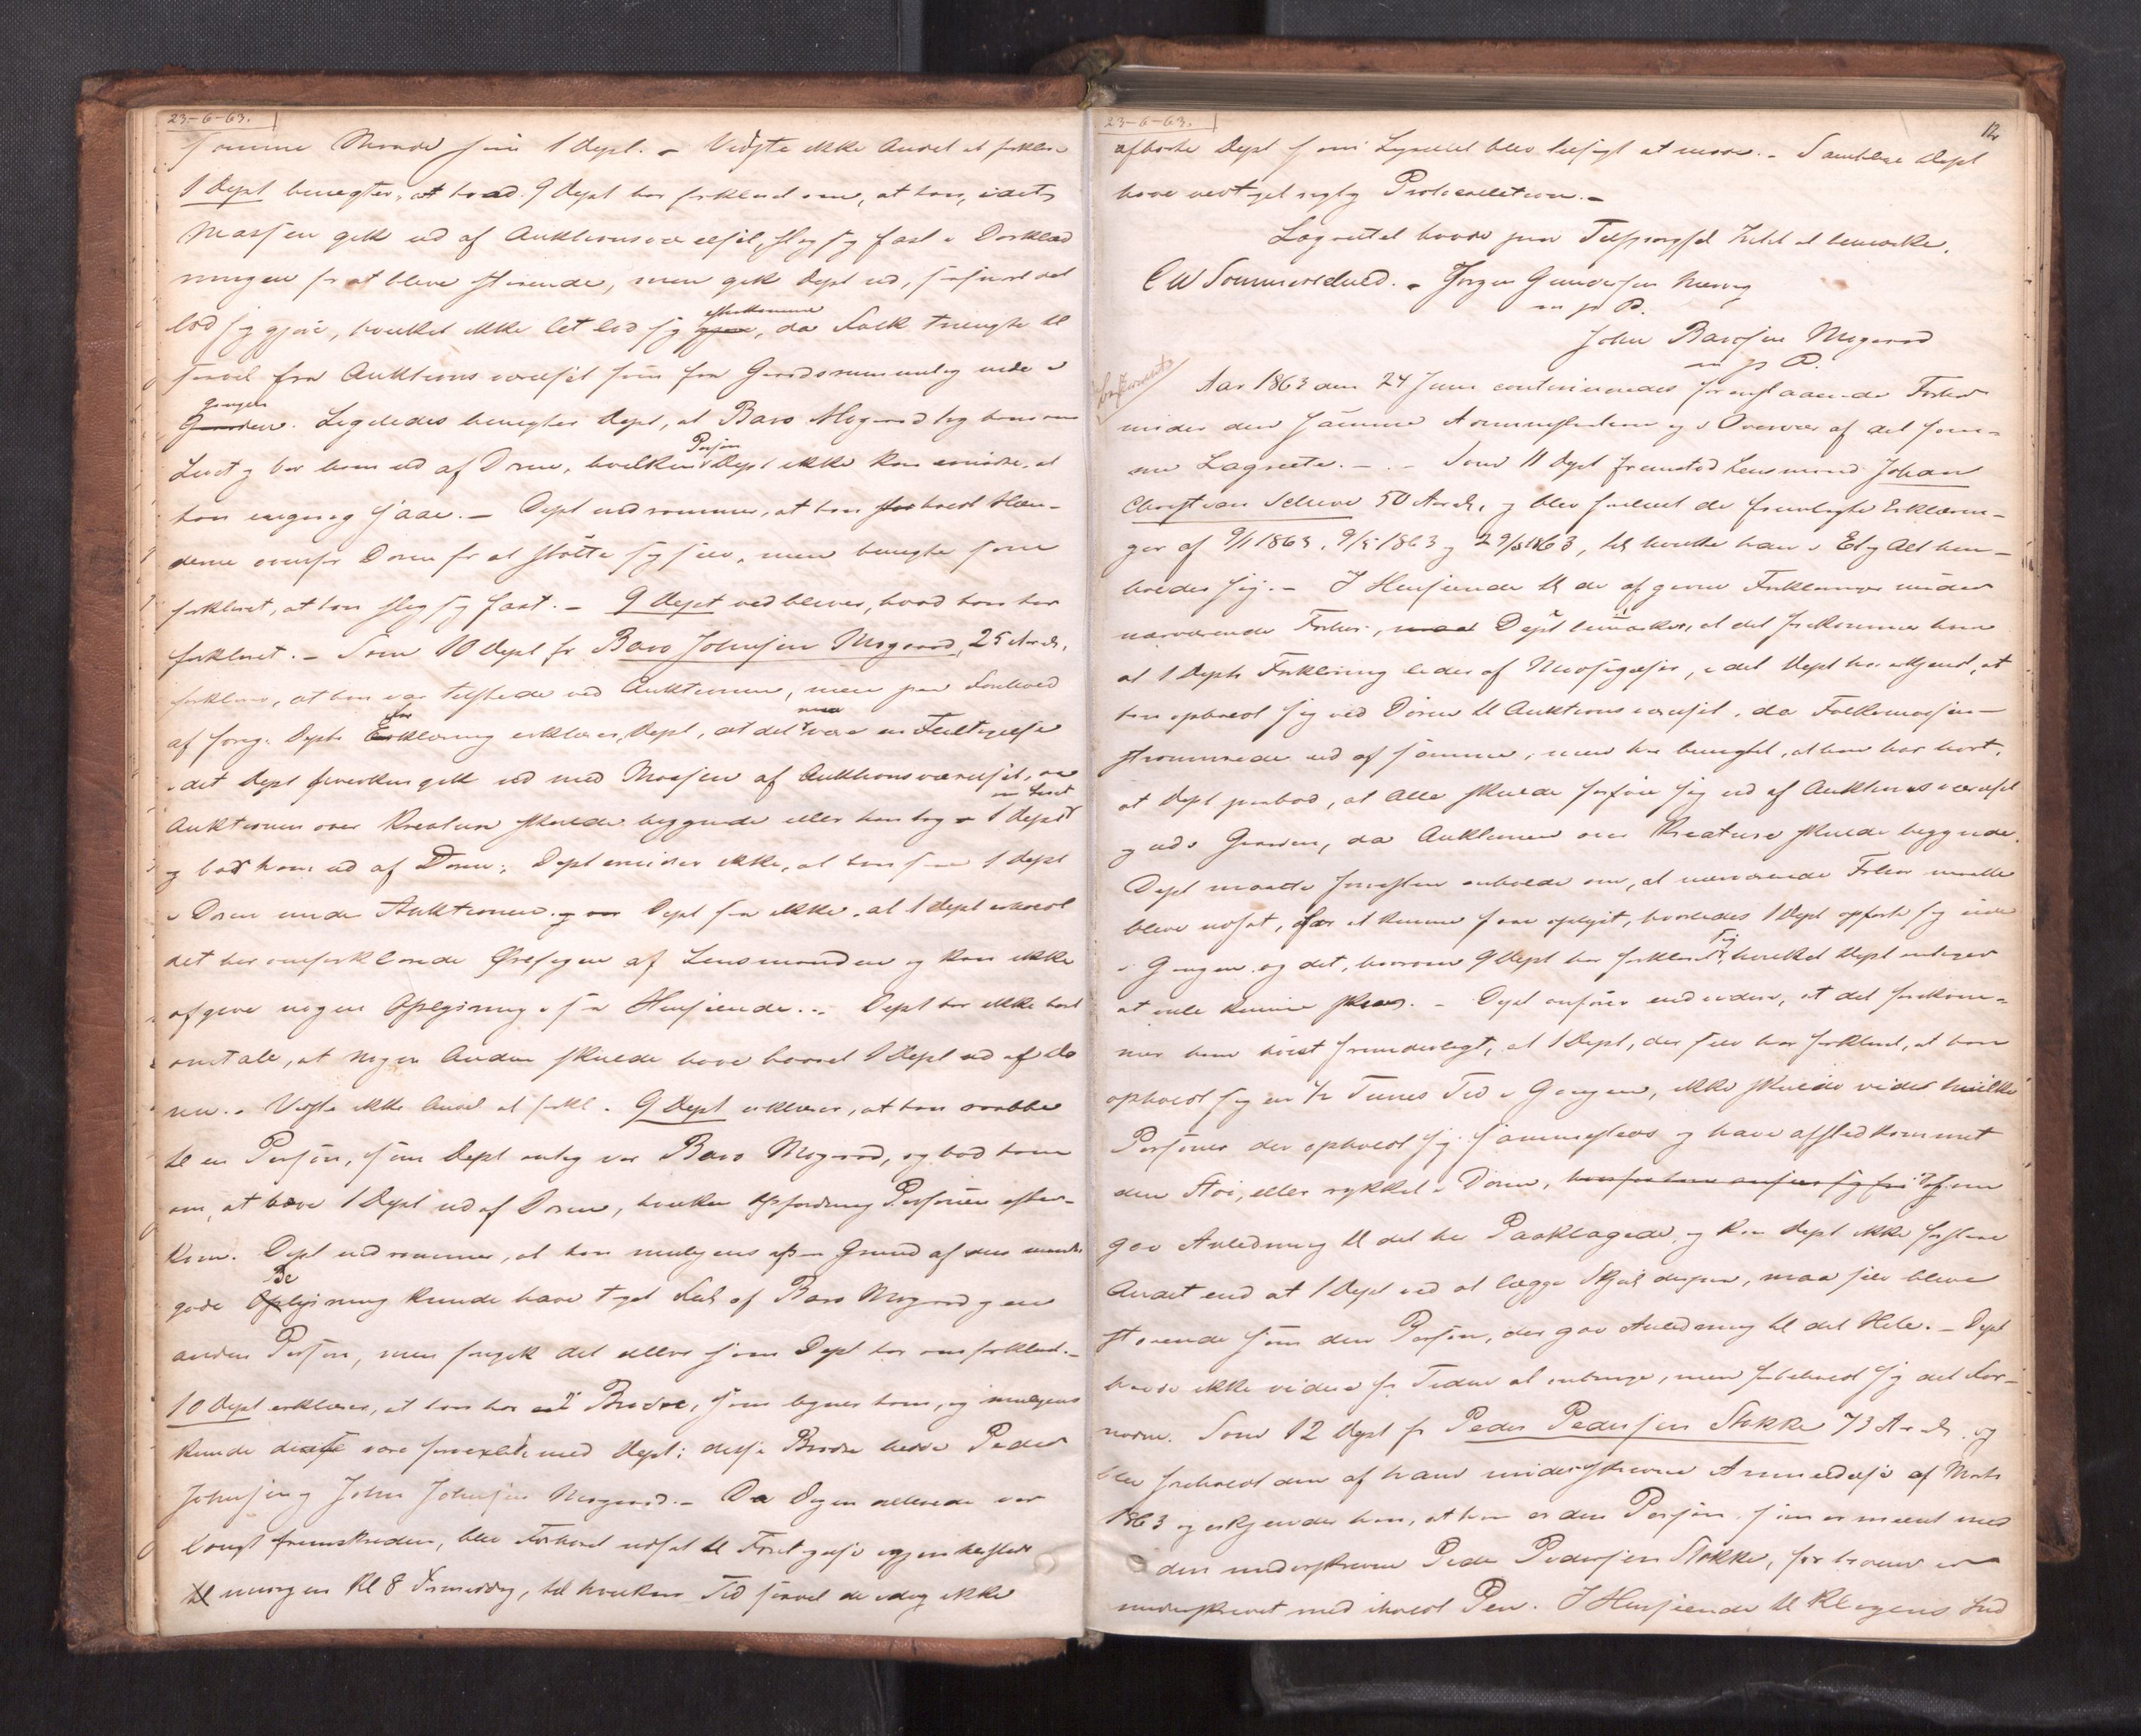 23-6-63.
samme Maade som 1 Dept. - Vidste ikke Andet at forklare
1 Dept benegter, at hvad 9 Dept har forklaret om, at han, idet
Massen gik ud af Auktionsværelset, slog sig fast i Dørklæd
ningen for at blive staaende, men gik Dept ud, saasnart det
lod sig gjøre, hvilket ikke let lod sig efterkomme, da Folk trængte til
saavel fra Auktionsværelset som fra Gaardsrummet inde i
Gangen. Ligeledes benegter Dept, at Baro Mogaard tog ham om
Livet og bar ham ud af Døren, hvilken Person Dept ikke kan erindre, at
han engang saae. - Dept indrømmer, at han holdt Hæn-
derne ovenfor Døren for at støtte sig selv, men benegter som
forklaret, at han slog sig fast. - 9 Dept vedbliver, hvad han har
forklaret. - Som 10 Dept fr Baro Johnsen Mogaard, 25 Aar gl.
forklarer, at han var tilstede ved Auktionen, men paa Forehold
af forrige Depts Forklaring erklærer Dept, at det maa være en Feiltagelse
idet Dept hverken gik ud med Massen af Auktionsværelset, da
Auktionen over Kreature skulde begynde eller han tog 1 Dept om Livet
og bar ham ud af Døren; Dept erindrer ikke, at han saa 1 Dept
i Døren under Auktionen. Dept saa ikke, at 1 Dept erholdt
det her omforklarede Ørefigen af Lensmanden og kan ikke
afgive nogen Oplysning i saa Henseende. - Dept har ikke hørt
omtale, at nogen Anden skulde have baaret 1 Dept ud af Dø
ren. - Vidste ikke Andet at forkl. 9 Dept erklærer, at han raabte
til en Person, som Dept antog var Baro Mogaard, og bad ham
om, at bære 1 Dept ud af Døren, hvilken Opfordring Personen efter-
kom. Dept indrømmer, at han muligens paa Grund af den mindre
gode Belysning kunde have taget Feil af Baro Mogaard og en
anden Person, men foregik det ellers som Dept har omforklaret.-
10 Dept erklærer, at han har 2 Brødre, som ligner ham, og muligens
kunde disse være forvexlet med Dept; disse Brødre hedde Peder
Johnsen og John Johnsen Mogaard. - Da Dagen allerede var
langt fremskreden, blev Forhøret udsat til Foretagelse igjen hersteds
imorgen Kl 8 Formiddag, til hvilken Tid saavel de idag ikke
23-6-63.
12
afhørte Dept som Lagrettet blev tilsagt at møde. - Samtlige Dept
have vedtaget rigtig Protocollation. -
Lagrettet havde paa Tilspørgsel Intet at bemærke.
C W Sommerfeldt. - Jørgen Gundersen
m p P.
John Barosen Mogaard
m p P.
Aar 1863 den 24 Juni continueredes foranstaaende Forhør
under den samme Administration og i Overvær af det sam-
me Lagrette. - . - Som 11 Dept fremstod Lensmand Johan
Christian Schive 50 Aar gl. og blev forelæst de fremlagte Erklærin-
ger af 9/1 1863, 9/5 1863 og 29/5 1863, til hvilke han i Et og Alt hen-
holder sig. - I Henseende til de afgivne Forklaringer under
nærværende Forhør, Dept bemærker, at det forekommer ham
at 1 Depts Forklaring lider af Modsigelser, idet Dept har erkjendt, at
han opholdt sig ved Døren til Auktionsværelset, da Folkemassen
strømmede ud af samme, men har benegtet, at han har hørt,
at Dept paabød, at Alle skulde forføie sig ud af Auktionsværelset
og ud i Gaarden, da Auktionen over Kreature skulde begynde.
Dept maatte forresten anholde om, at nærværende Forhør maatte
blive udsat, for at kunne faae oplyst, hvorledes 1 Dept opførte sig inde
i Gangen og det, hvorom 9 Dept har forklaret sig, hvilket Dept antager
at ville kunne skee. - Dept anfører endvidere, at det forekom-
mer ham høist forunderligt, at 1 Dept, der selv har forklaret, at han
opholdt sig en 1/2 Times Tid i Gangen, ikke skulde vide hvilke
Personer der opholdt sig sammesteds og have afstedkommet
den Støi, eller rykket i Døren, som
gav Anledning til det her Paaklagede, og kan Dept ikke forstaae
Andet end at 1 Dept ved at lægge Skjul derpaa, maa selv blive
staaende som den Person, der gav Anledning til det Hele. - Dept
havde ikke videre for Tiden at anbringe, men forbeholdt sig det For-
nødne. Som 12 Dept fr Peder Pedersen Stokke 73 Aar gl. og
blev foreholdt den af ham underskrevne Anmeldelse af Marts
1863 og erkjender han, at han er den Person, som er meent med
den underskrevne Peder Pedersen Stokke, for hvem er
underskrevet med iholdt Pen. I Henseende til Klagens Ind